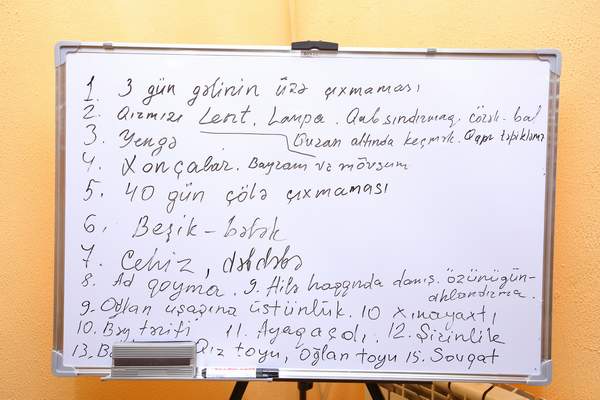 1. 3 gün gəlinin üzə çıxmaması
2. Qırmızı Lent. Lampa. Qab sındırmaq. çörək-bal
3. Yengə Quran altında keçmək. Qapı təpikləmə
4. Xonçalar. Bayram və mövsüm
5. 40 gün çölə çıxmaması
6. Beşik-bələk
7. Cehiz, dəbdəbə
8. Ad qoyma. 9. Ailə haqqında danış. özünügün-
ahlandırma.
9. Oğlan uşağına üstünlük. 10 Xınayaxtı
10. Bəy tərifi 11. Ayaqaçdı. 12. Şirinlik
13. Qız toyu, Oğlan toyu 15. Sovqat